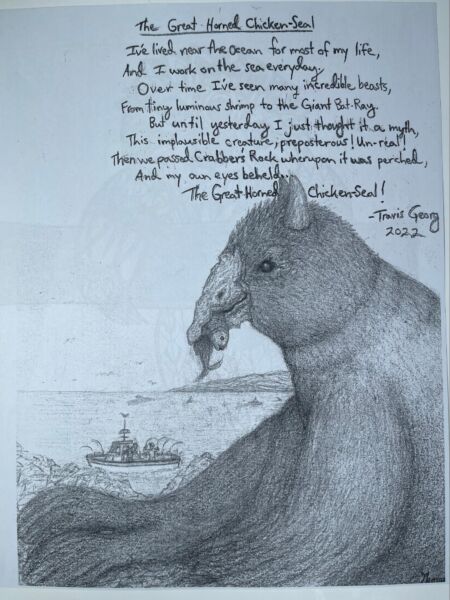 The Great Horned Chicken-Seal
I've lived near the Ocean for most of my life,
And I work on the sea everyday.
Over time I've seen many incredible beasts,
From tiny luminous shrimp to the Giant Bat-Ray.
But until yesterday I just thought it a myth,
This implausible creature, preposterous! Un-real!
Then we passed Crabbers Rock wherupon it was perched,
And my own eyes beheld...
The Great Horned Chicken-Seal!
-Travis Georg
2022